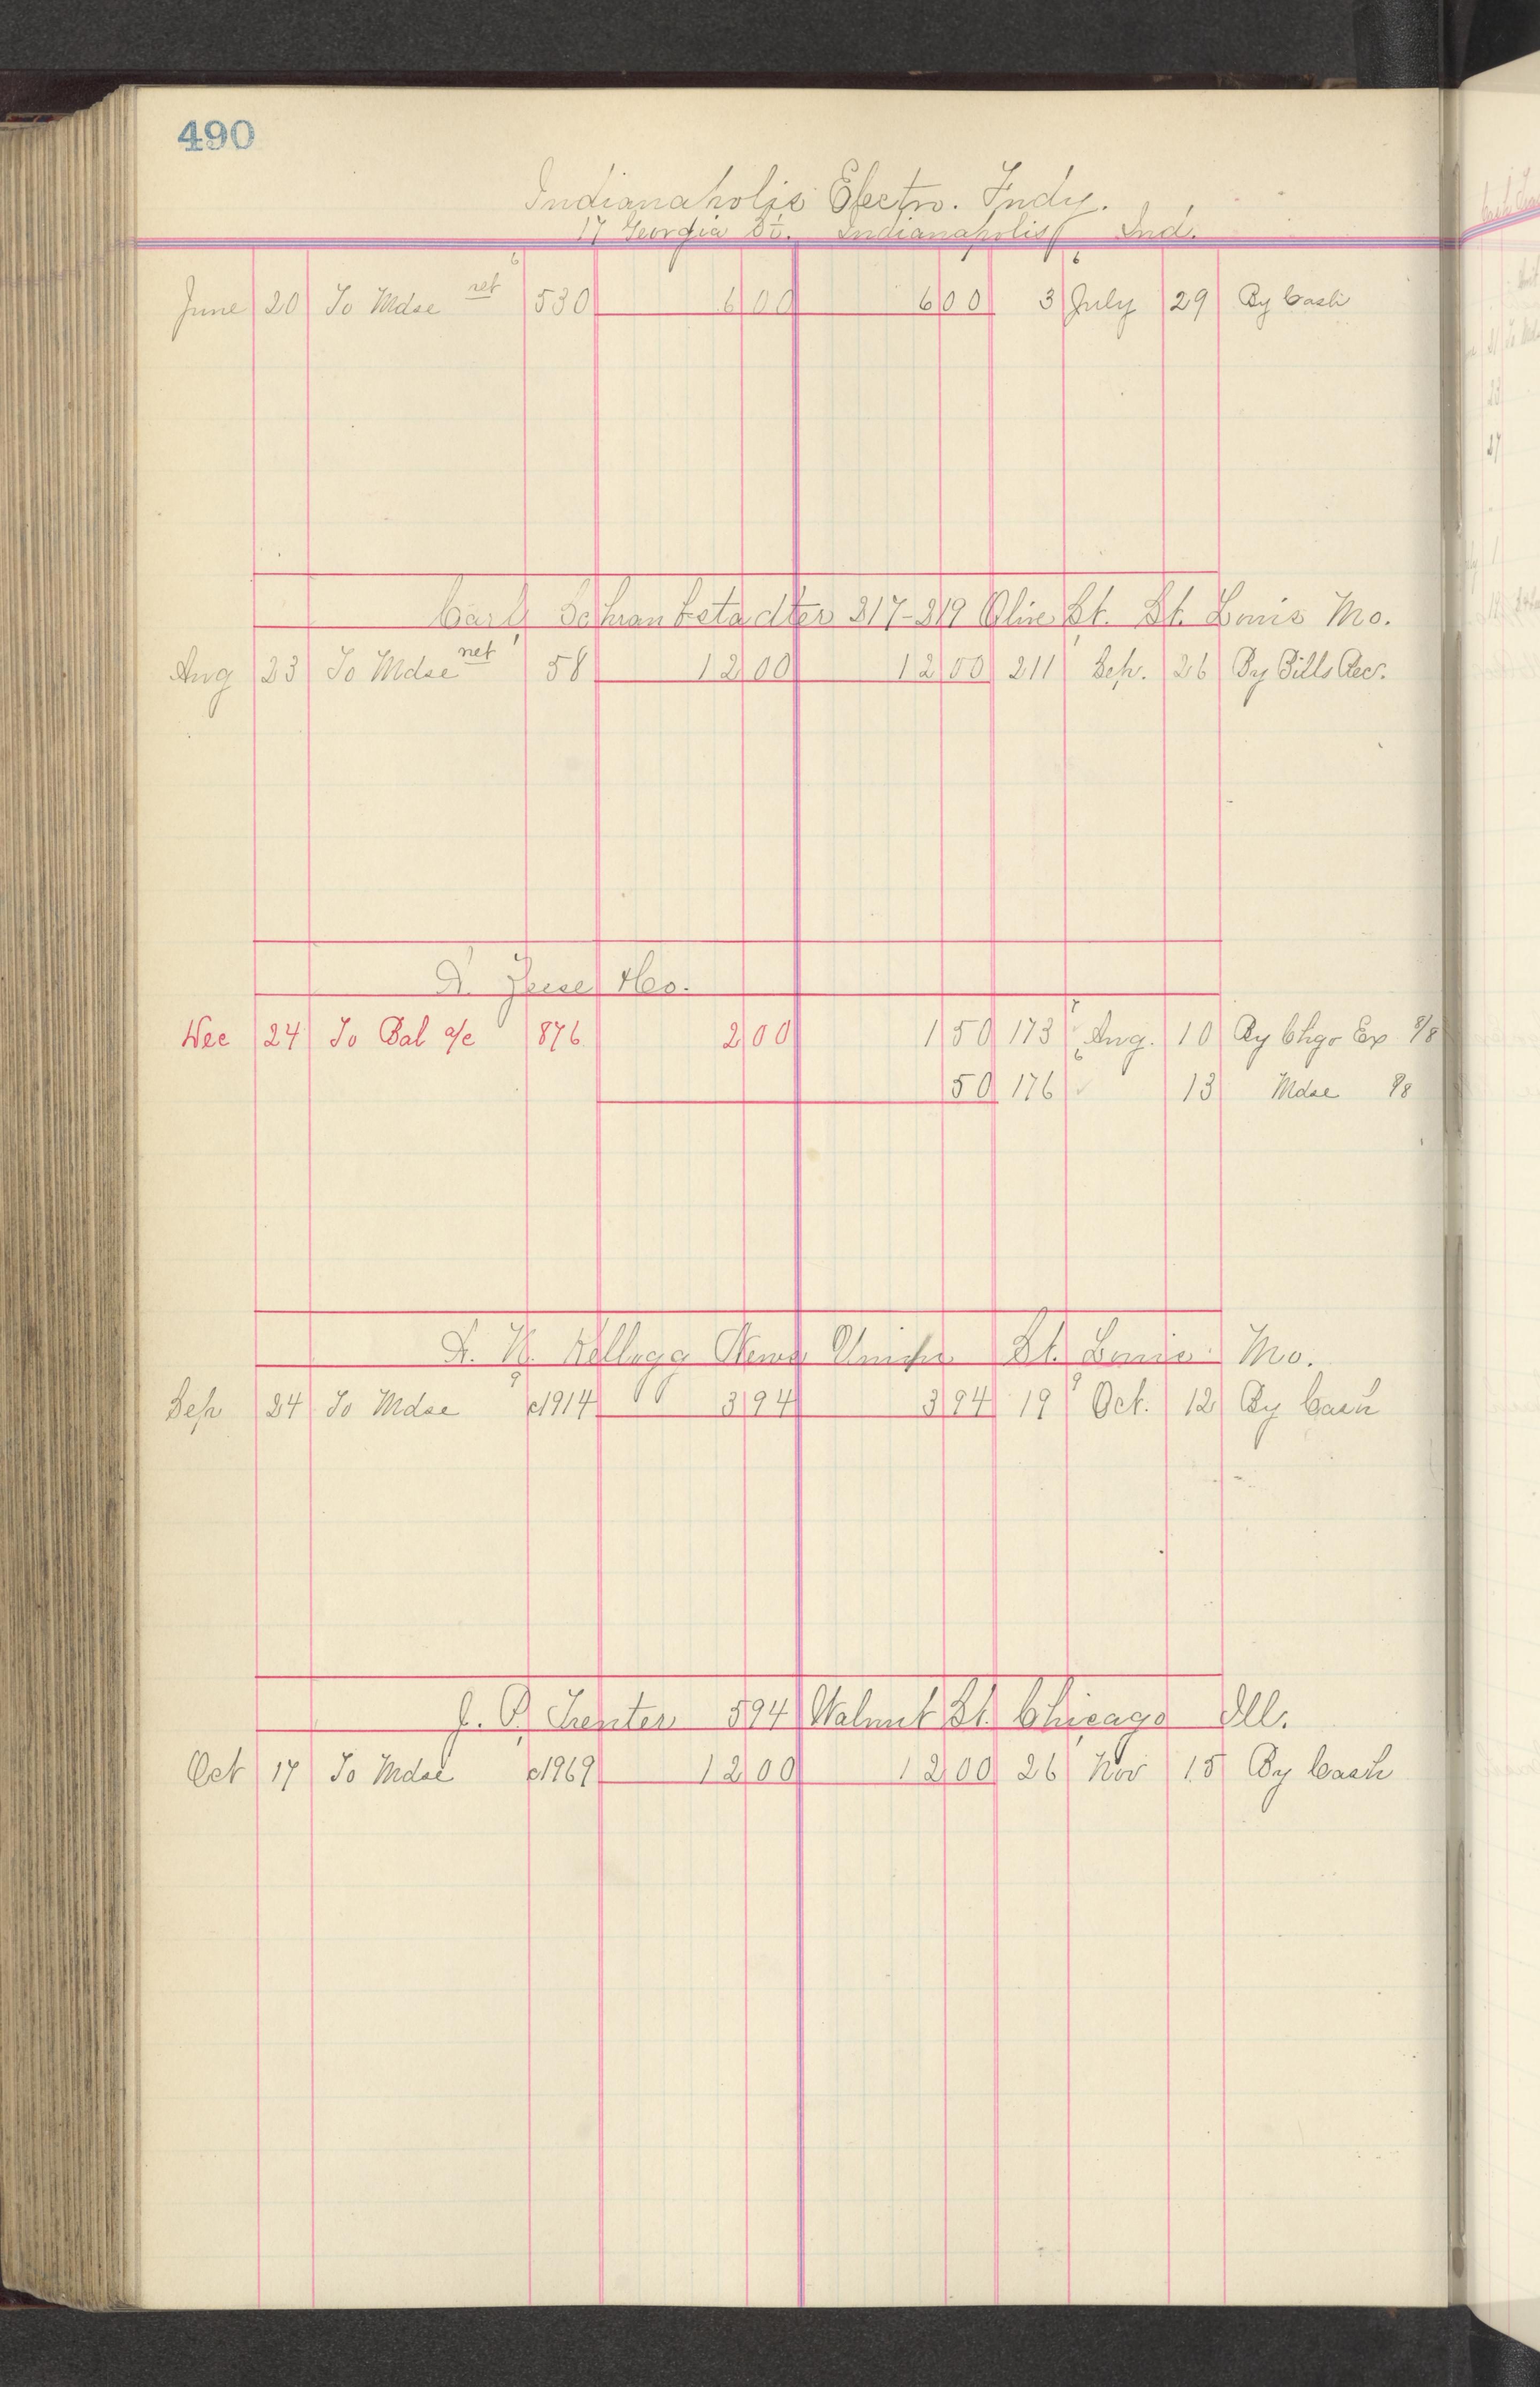 490
Indianapolis Electro. Fndy.
17 Georgia St. Indianapolis Ind.
June 20 To Mdse net 530 6 00 6 00 3 July 29 By Cash
Carl Schraubstadter 217-219 Olive St. St. Louis Mo.
Aug 23 To Mdse net 58 12 00 12 00 211 Sep. 26 By Bills Rec.
& Co.
Dec 24 To Bal a/c 876 2 00 1 50 173 Aug. 10 By Chgo Ex 8/8
50 176 13 Mdse 98
A. N. Kellogg News Union St. Louis Mo.
Sep 24 To Mdse c1914 3 94 3 94 19 Oct. 12 By Cash
J. P. 594 Walnut St. Chicago Ill.
Oct 17 To Mdse c1969 12 00 12 00 26 Nov 15 By Cash